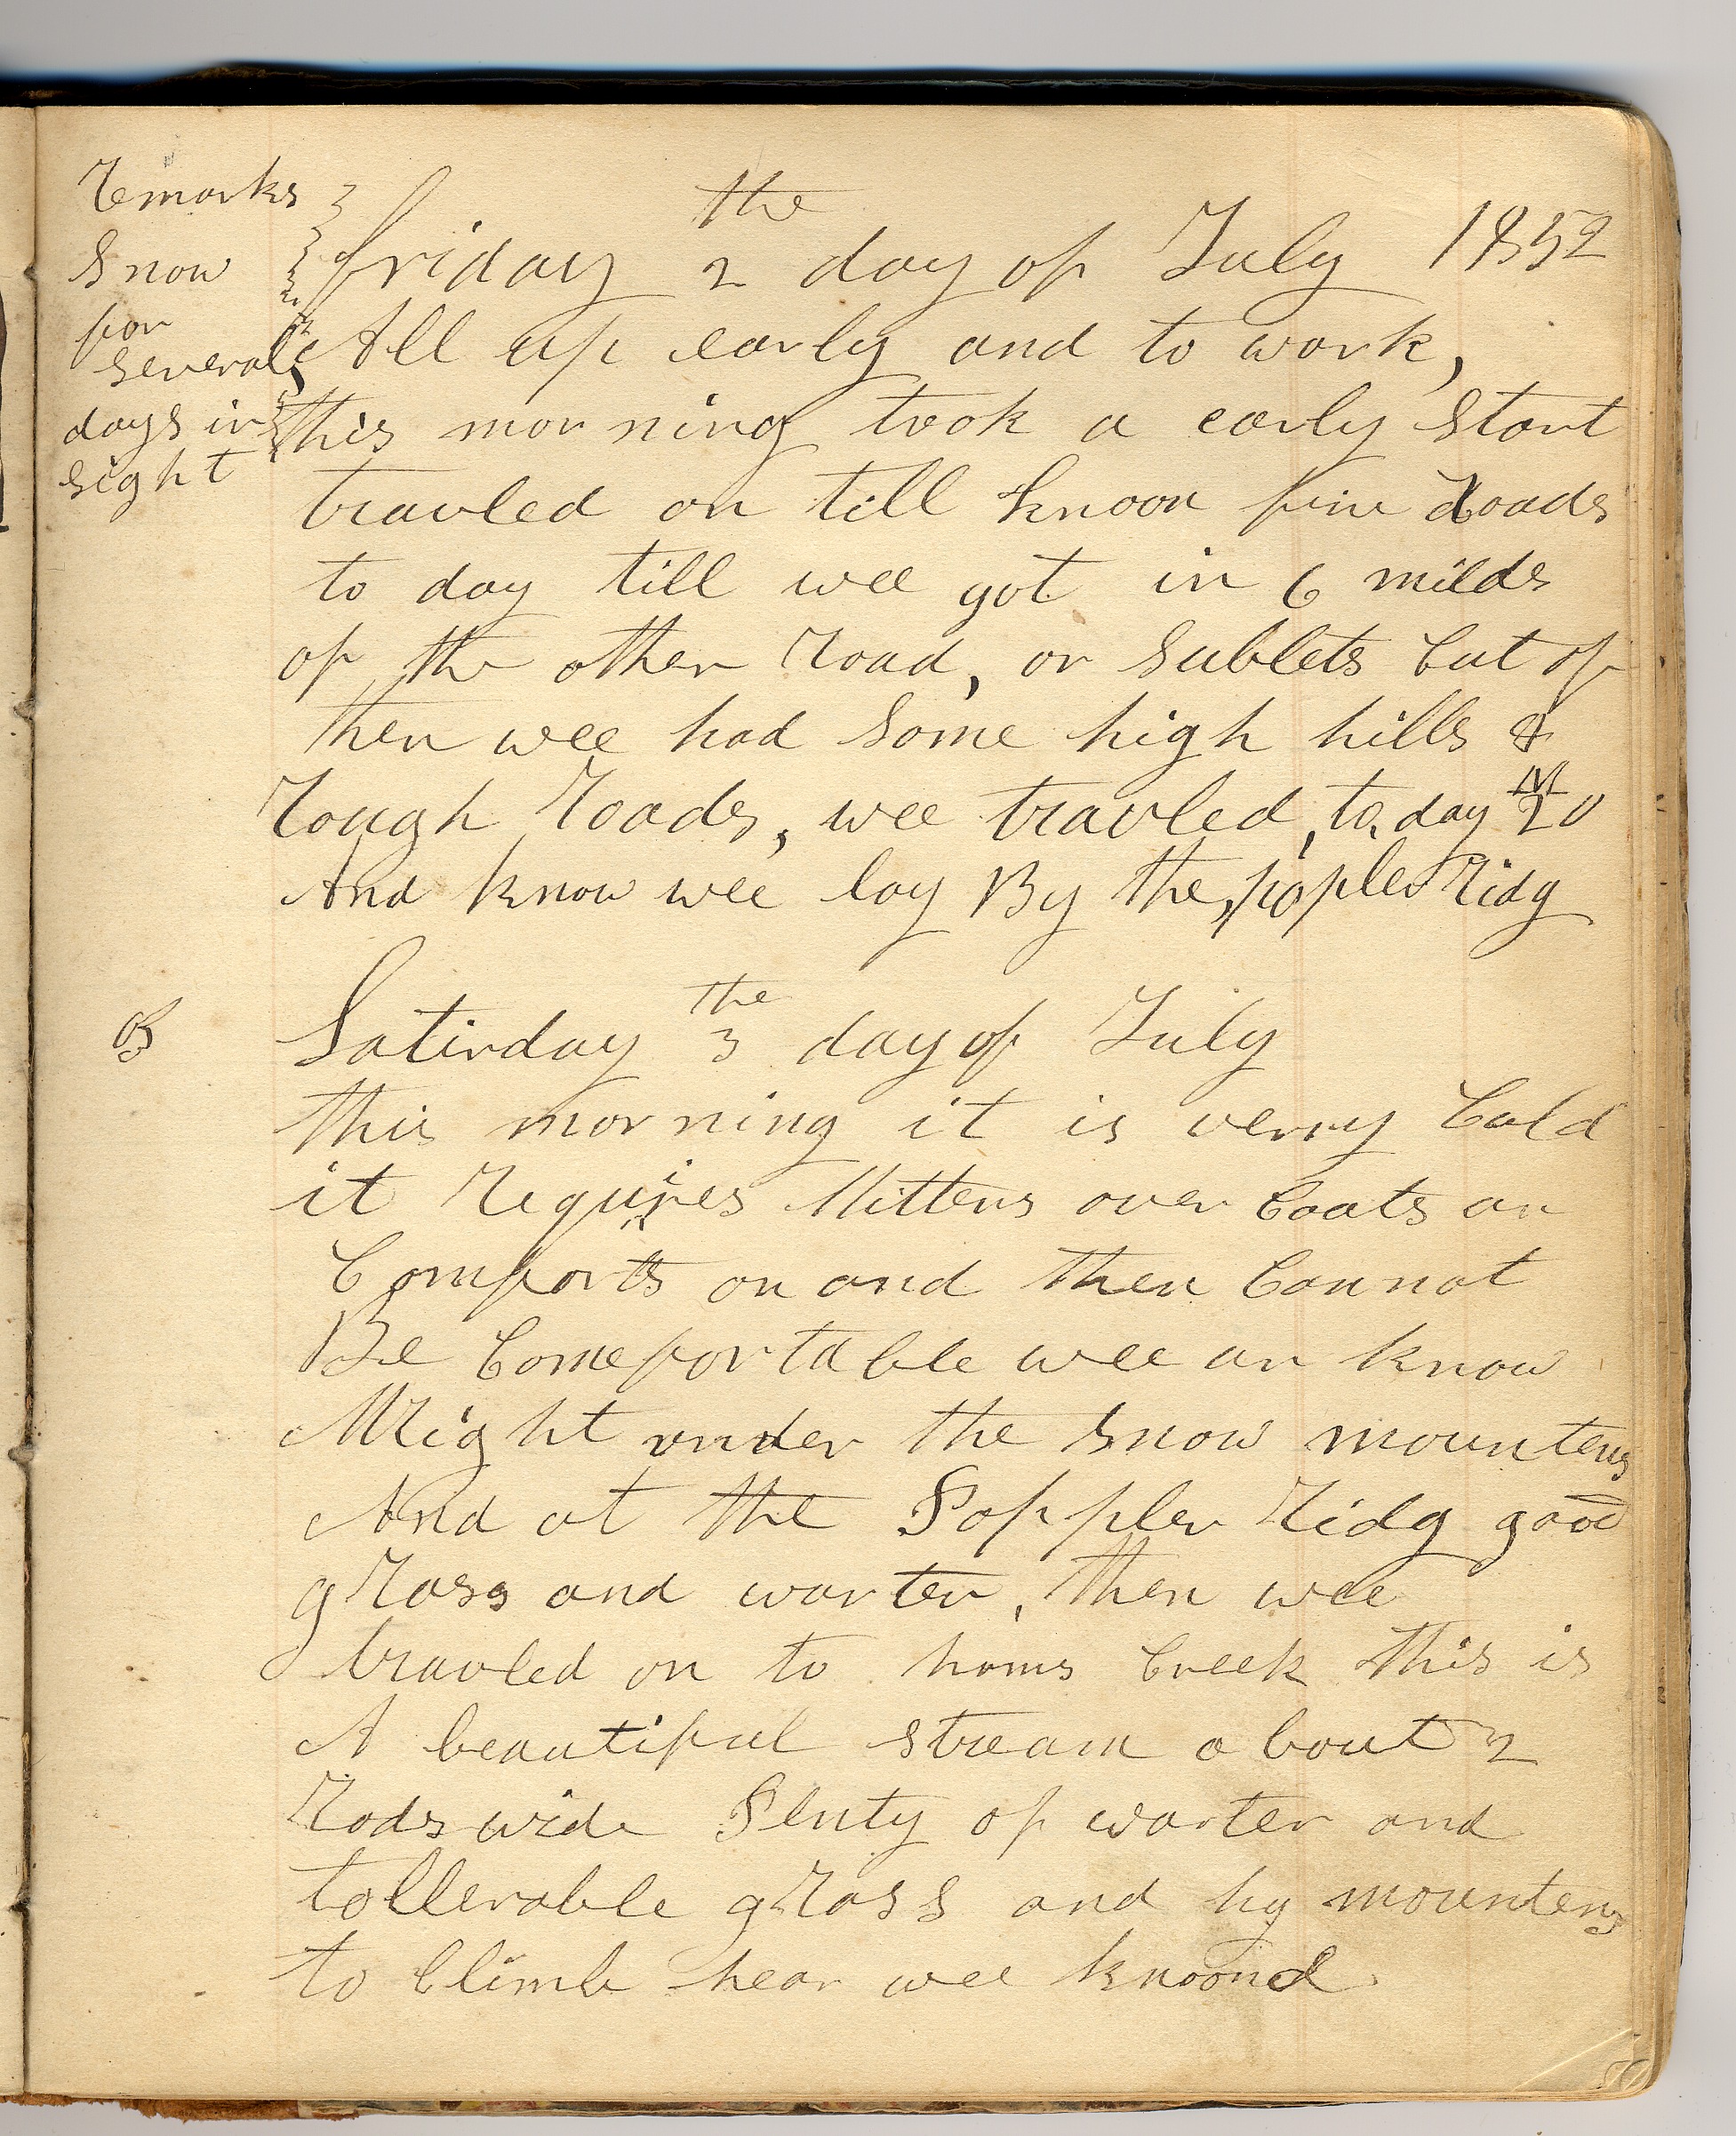 Remarks
Snow
for
several
days in
sight
the
friday 2 day of July 1852
All up early and to work,
this morning took a early Start
travled on till knoon fine Roads
to day till wee got in 6 milds
of the other Road, or Sublets Cut of
then wee had Some high hills &
Rough Roads, wee travled, to, day M 20
And know wee lay By the, popler Ridg
the
Saturday 3 day of July
this morning it is verry Cold
it Requires Mittens over Coats an
Comforts on and then Cannot
Be Comefortable wee ar know
Right under the Snow mountens
And at the Poppler Ridg good
grass and warter, then wee
travled on to hams Creek this is
A beautiful stream about 2
Rods wide Plenty of warter and
tollerable grass and hy mountens
to Climb hear wee knoond